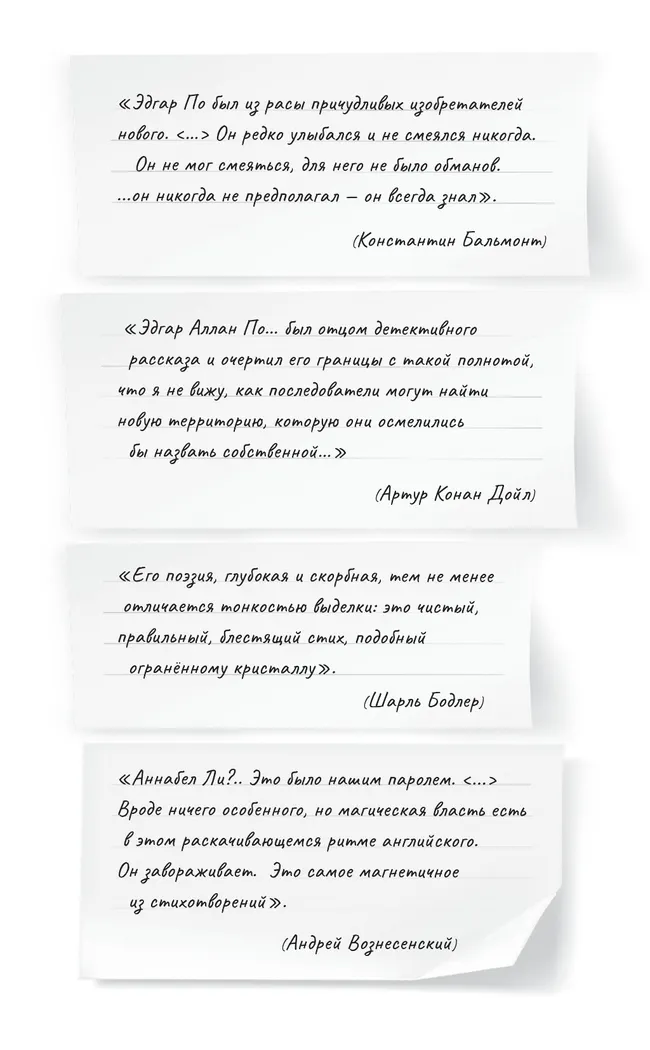 «Эдгар По был из расы причудливых изобретателей
нового. <...> Он редко улыбался и не смеялся никогда.
Он не мог смеяться, для него не было обманов.
...он никогда не предполагал – он всегда знал».
(Константин Бальмонт)
«Эдгар Аллан По... был отцом детективного
рассказа и очертил его границы с такой полнотой,
что я не вижу, как последователи могут найти
новую территорию, которую они осмелились
бы назвать собственной...»
(Артур Конан Дойл)
«Его поэзия, глубокая и скорбная, тем не менее
отличается тонкостью выделки: это чистый,
правильный, блестящий стих, подобный
огранённому кристаллу».
(Шарль Бодлер)
«Аннабел Ли?.. Это было нашим паролем. <...>
Вроде ничего особенного, но магическая власть есть
в этом раскачивающемся ритме английского.
Он завораживает. Это самое магнетичное
из стихотворений».
(Андрей Вознесенский)